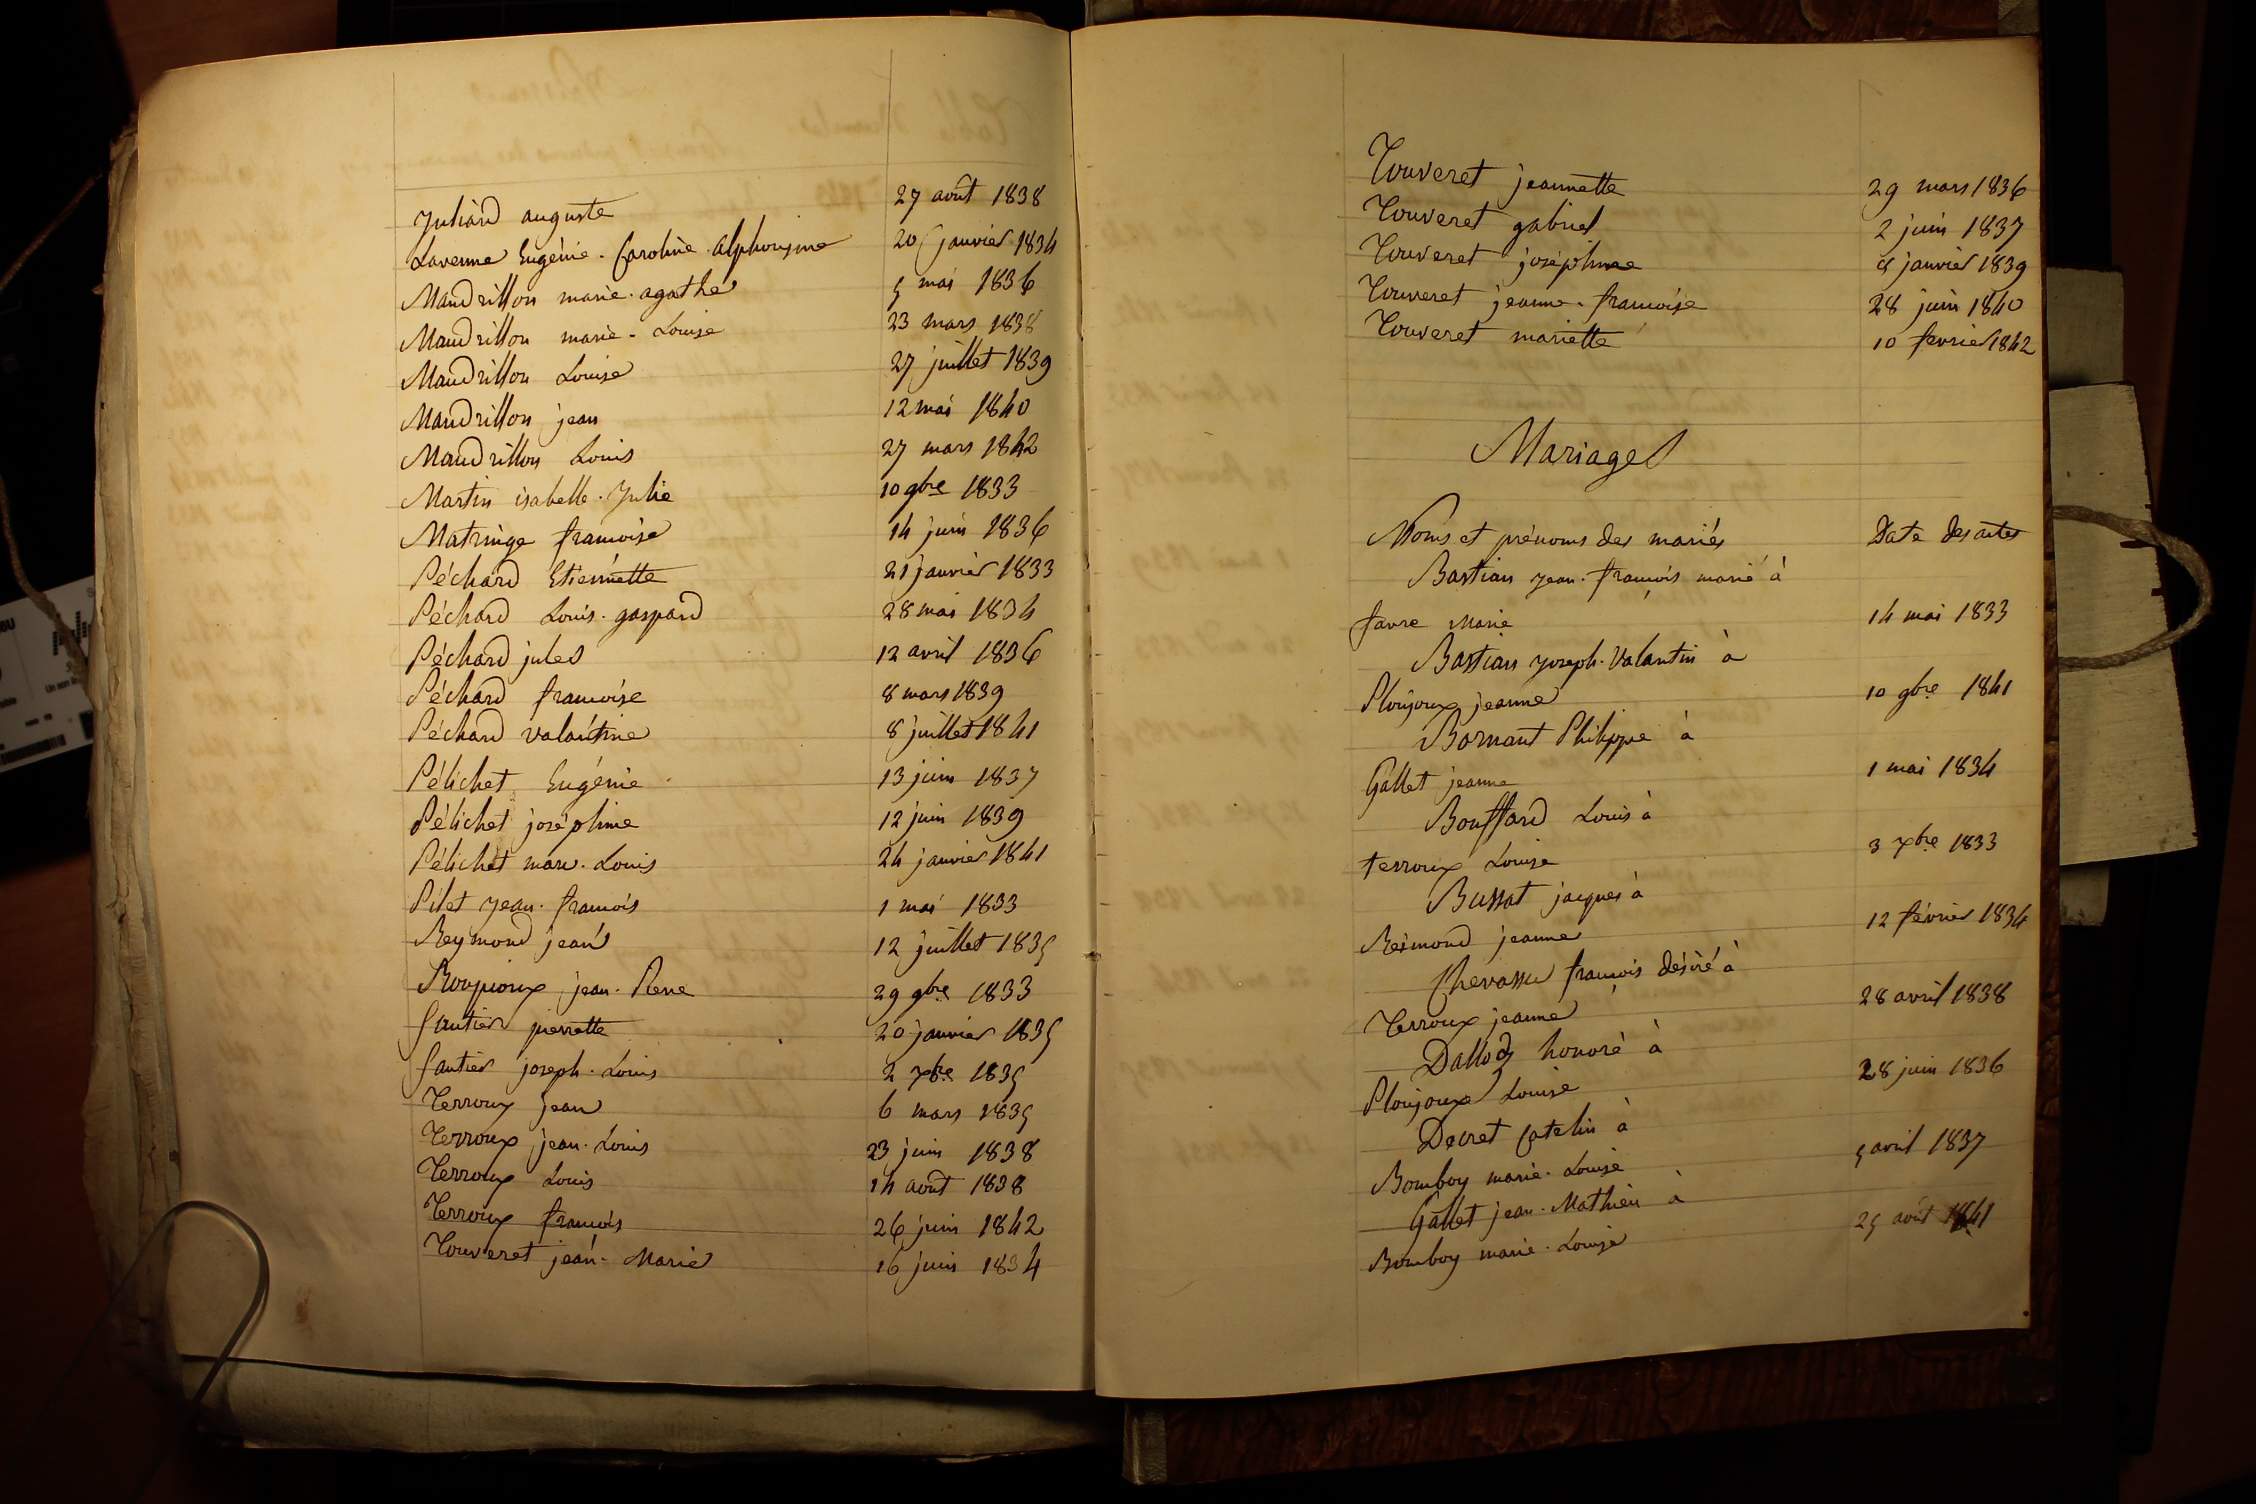 Juliard auguste 27 août 1838
Lavenne Eugénie. Caroline. alphonsine 20 janvier 1834
Mandrillon marie. agathe 5 mai 1836
Mandrillon marie. Louise 23 mars 1838
Mandrillon Louise 27 juillet 1839
Mandrillon jean 12 mai 1840
Mandrillon Louis 27 mars 1842
Martin isabelle. Julie 10 9bre 1833
Matringe francoise 14 juin 1836
Péchard Etiennette 21 janvier 1833
Péchard Louis. gaspard 28 mai 1834
Péchard jules 12 avril 1836
Péchard francoise 8 mars 1839
Péchard valantine 8 juillet 1841
Pélichet Eugénie 13 juin 1837
Pélichet joséphine 12 juin 1839
Pélichet marc. Louis 24 janvier 1841
Pilet jean. francois 1 mai 1833
Reymond jean 12 juillet 1835
Roupioux jean. Rene 29 9bre 1833
Sautier pierrette 20 janvier 1835
Sautier joseph. Louis 2 xbre 1835
Terroux jean 6 mars 1835
Terroux jean. Louis 23 juin 1838
Terroux Louis 14 août 1838
Terroux francois 26 juin 1842
Touveret jean. Marie 16 juin 1834
Touveret jeannette 29 mars 1836
Touveret gabriel 2 juin 1837
Touveret joséphine janvier 1839
Touveret jeanne. francoise 28 juin 1840
Touveret mariette 10 fevrier 1842
Mariages
Noms et prénoms des mariés Date des actes
Bastian jean. françois marié à
favre Marie 14 mai 1833
Bastian joseph. Valantin à
Ploujoux jeanne 10 9bre 1841
Bornant Philippe à
Gallet jeanne 1 mai 1834
Bouffard Louis à
terroux Louise 3 xbre 1833
Bussat jacques à
Reimond jeanne 12 février 1834
Chevassu françois désiré à
Terroux jeanne 28 avril 1838
Dalloz honoré à
Ploujoux Louise 28 juin 1836
Decret Catelin à
Bomboy marie. Louise 5 avril 1837
Gallet jean. Mathieu à
Bomboy marie. Louise 25 août 1841